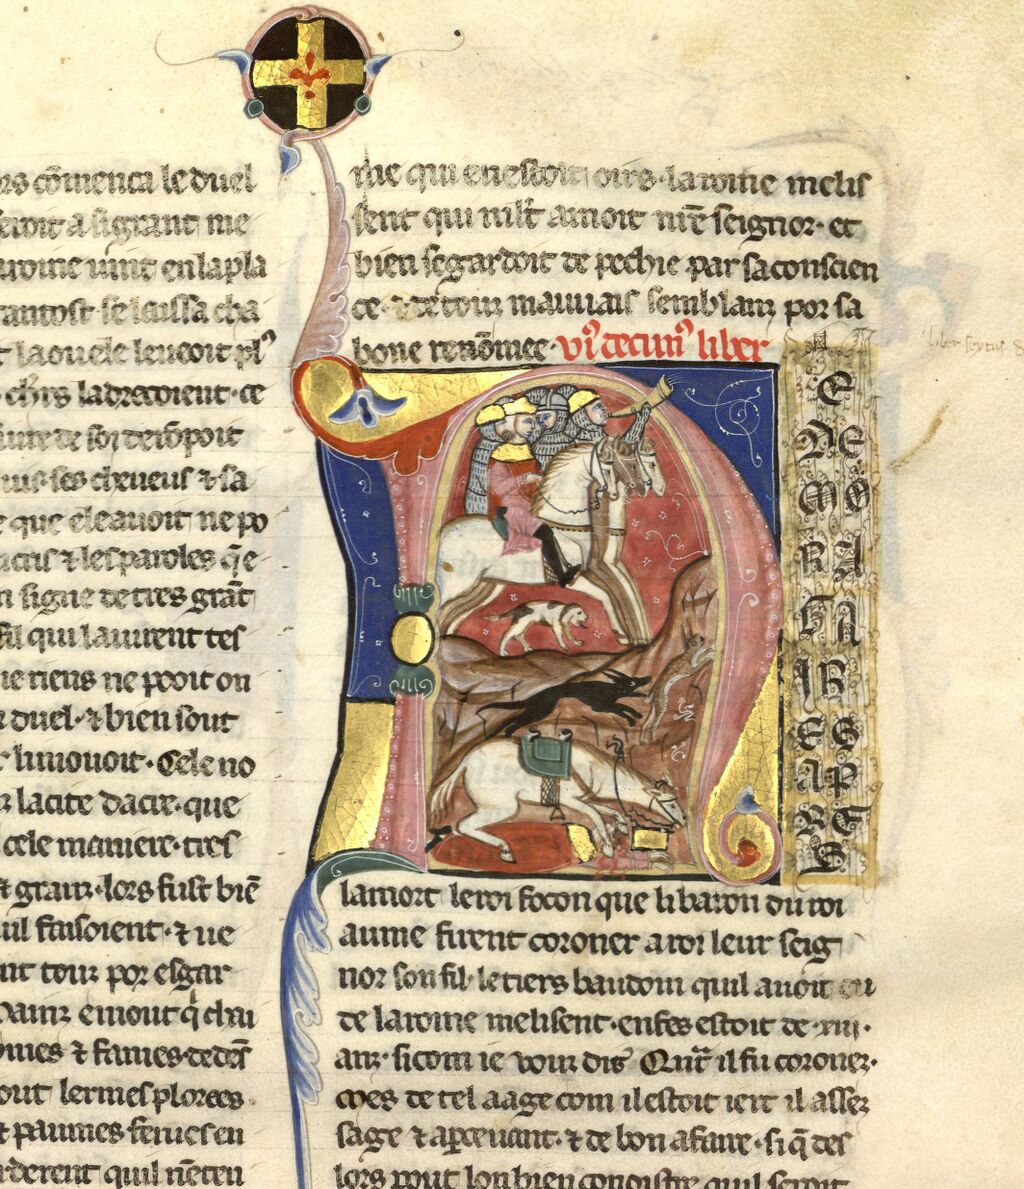 rs cōmenca le duel
seroit a si grant me
roine vint en la pla
tantost se laissa cha
t la ou ele levoit pl9
chl'rs la drecoient · ce
dure de soi derōpoit
nus · ses cheveus ⁊ sa
e que ele avoit ne po
⁊ les paroles q̄ e
n signe de tres grāt
fil qui laurent tes
ne riens ne pooit on
duel · ⁊ bien sout
li movoit · Cele no
la cite dacre · que
cele maniere · tres
t grant · lors fust biē
uil faisoient · ⁊ ue
nt tout por esgar
q̄ chni
omes ⁊ fames · dedēs
out lermes plorees ·
t paumes ferues en
rderent quil nēteu
rie qui en estoit oirs · la roine melis
sent qui mlt' amoit n̄re seignor · et
bien se gardoit de pechie par sa conscien
ce · ⁊ de touz mauvais semblanz por sa
bone renōmee · vi9 decim9 liber
liber sextus d
E
DE
MO
RA
NA
IR
ES
AP
RE
S
la mort le roi focon que li baron du roi
aume firent coroner a roi leur seig
nor son fil · le tiers baudoin quil avoit eu
de la roine melisent · enfes estoit de · xiii ·
anz · si com ie vouz dis Quāt il fu coronez ·
Mes de tel aage com il estoit iert il assez
sage ⁊ apcevant · ⁊ de bon afaire · si q̄ des
lors pout lon bien conoistre quil seroit